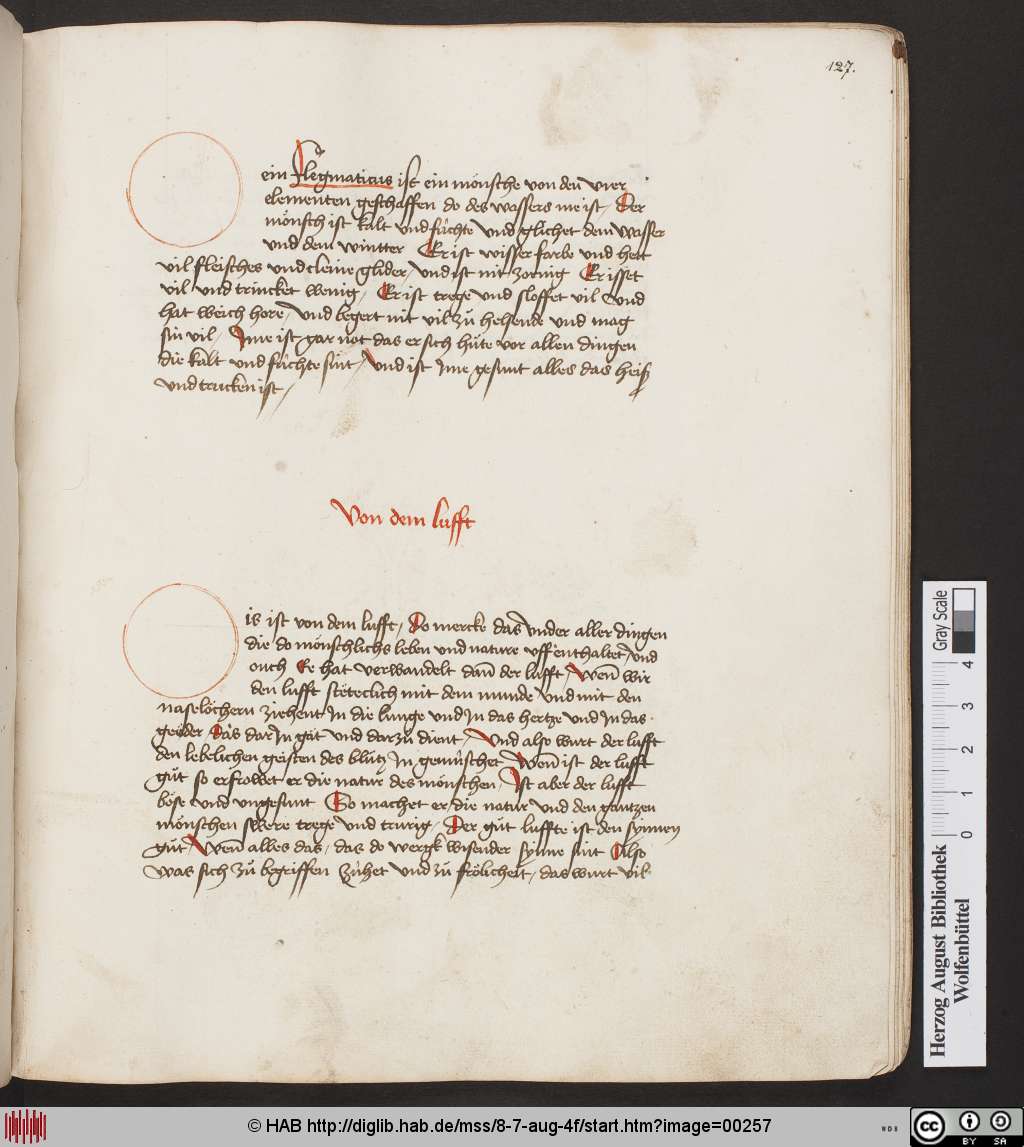 127.
ein Flegmaticus ist ein mönsche von den vier
elementen geschaffen do des wassers me ist / Der
mönsch ist kalt und fúchte und glichet dem wasser
und dem wintter Er ist wisser farbe und hett
vil fleisches und cleine glider / und ist nit zornig Er isset
vil und trincket wenig / Er ist trege und sloffet vil und
hat weich hore / und begert nit vil zů helsende und mag
sin vil / Ime ist gar not das er sich hüte vor allen dingen
die kalt und fúchte sint / und ist Ime gesunt alles das heiß
und trucken ist /
Von dem lufft
is ist von dem lufft / Do mercke das under aller dingen
die do mönschlichs leben und nature uffenthaltet / und
ouch Ee hat verwandelt dañ der lufft / Weñ wir
den lufft steteclich mit dem munde und mit den
naselöchern ziehent In die lunge und In das hertze und In das
geäder Das dar In gat und dar zů dient / Und also wurt der lufft
den lebelichen geisten des blůtz In gemúschet Weñ ist der lufft
gůt so erfrowet er die natur des mönschen / Ist aber der lufft
böse und ungesunt So machet er / die natur und den gantzen
mönschen swere trege und trurig / Der gůt luffte ist den synnen
gůt / Weñ alles das / das do werck wisender synne sint Also
was sich zů begriffen zúhet und zů frölicheit / das wurt vil
Herzog August Bibliothek
Wolfenbüttel
Gray Scale
0 1 2 3 4
© HAB http://diglib.hab.de/mss/8-7-aug-4f/start.htm?image=00257
WDB
cc BY SA